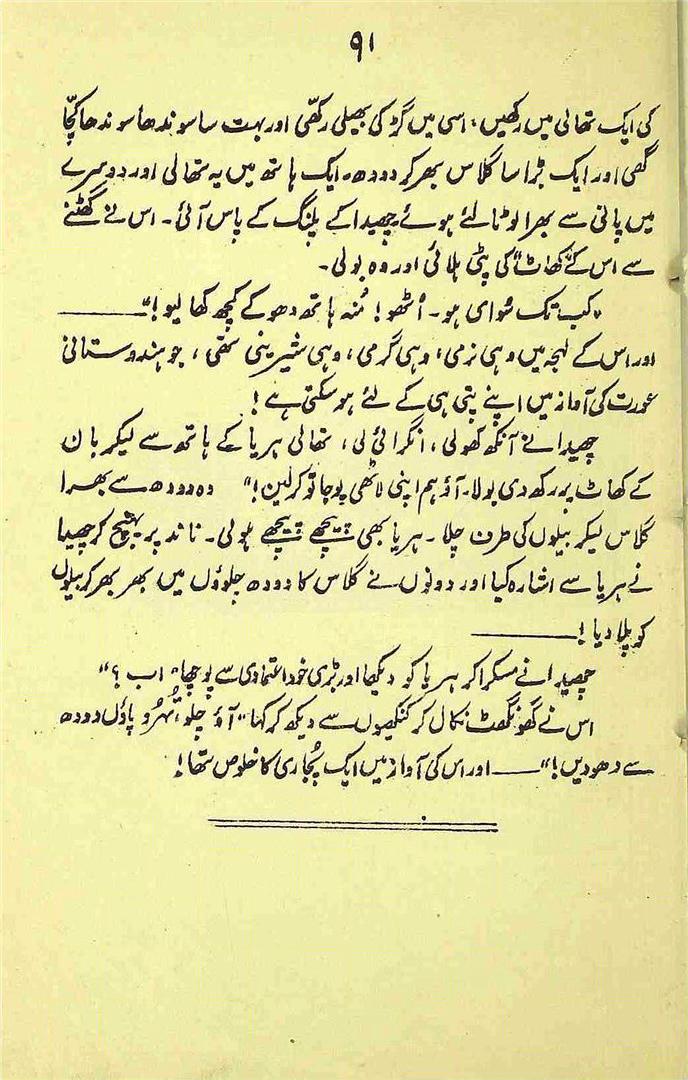 ۹۱
کی ایک تھالی میں رکھیں، اسی میں گڑ کی بھیلی رکھّی اور بہت سا سوندھا سوندھا کچّا
گھی اور ایک بڑا سا گلاس بھر کر دودھ۔ ایک ہاتھ میں یہ تھالی اور دوسرے
میں پانی سے بھرا لوٹا لئے ہوئے چھیدا کے پلنگ کے پاس آئی۔ اس نے گھٹنے
سے اس کے کھاٹ کی پٹی ہلائی اور وہ بولی۔
"کب تک سُوای ہو۔ اُٹھو! مُنہ ہاتھ دھو کے کچھ کھا لیو!"
اور اس کے لہجہ میں وہی نرمی، وہی گرمی، وہی شیرینی تھی، جو ہندوستانی
عورت کی آواز میں اپنے پتی ہی کے لئے ہو سکتی ہے!
چھیدا نے آنکھ کھولی، انگڑائی لی، تھالی ہریا کے ہاتھ سے لیکر بان
کے کھاٹ پر رکھ دی بولا۔ آؤ ہم اپنی لاٹھی پوجا تو کر لین!" وہ دودھ سے بھرا
گلاس لیکر بیلوں کی طرف چلا۔ ہریا بھی پیچھے پیچھے ہولی۔ ناند پر پہنچ کر چھیدا
نے ہریا سے اشارہ کیا اور دونوں نے گلاس کا دودھ چلوؤں میں بھر بھر کر بیلوں
کو پلا دیا!
چھیدا نے مسکرا کر ہریا کو دیکھا اور بڑی خود اعتمادی سے پوچھا "اب؟"
اس نے گھونگھٹ نکال کر کنکھیوں سے دیکھ کر کہا "آؤ چلو تُہرو پاؤں دودھ
سے دھو دیں!" ــــ اور اس کی آواز میں ایک پُجاری کا خلوص تھا!